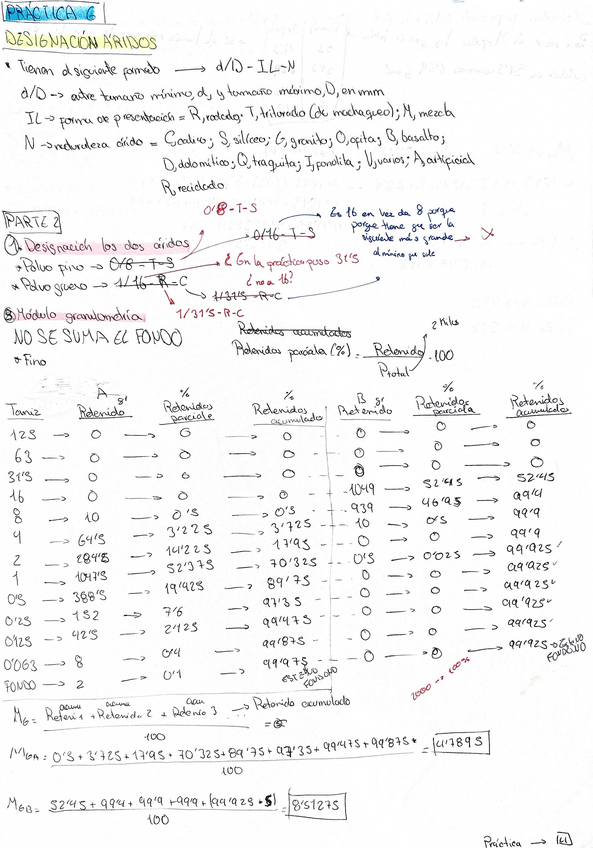 PRÁCTICA 6
DESIGNACIÓN ÁRIDOS
• Tienen el siguiente formato → d/D - IL - N
d/D → entre tamaño mínimo, d, y tamaño máximo, D, en mm
IL → forma de presentación = R, rodado; T, triturado (de machaqueo); M, mezcla
N → naturaleza árido = C, calizo; S, silíceo; G, granito; O, ofita; B, basalto;
D, dolomítico; Q, traquita; I, fonolita; V, varios; A, artificial
R, reciclado
PARTE 2
0/8-T-S
→ Es 16 en vez de 8 porque
porque tiene que ser la
siguiente más grande → X
al mínimo que sale
1. Designación los dos áridos
* Polvo fino → 0/8-T-S → 0/16-T-S
→ ¿En la práctica puso 31'5
¿no a 16?
* Polvo grueso → 1/16-R-C → 1/31'5-R-C
1/31'5-R-C
3. Módulo granulometría
NO SE SUMA EL FONDO
* Fino
Retenidos acumulados
Retenidos parciala (%) = Retenido / Ptotal · 100
2 Kilos
Tamiz A gr Retenido % Retenidos parciale % Retenidos acumulado B gr Retenido % Retenidos parciala % Retenidos acumulado
125 → 0 → 0 → 0 0 → 0 → 0
63 → 0 → 0 → 0 0 → 0 → 0
31'5 → 0 → 0 → 0 0 → 0 → 0
16 → 0 → 0 → 0 1049 → 52'45 → 52'45
8 → 10 → 0'5 → 0'5 939 → 46'95 → 99'4
4 → 64'5 → 3'225 → 3'725 10 → 0'5 → 99'9
2 → 284'5 → 14'225 → 17'95 0 → 0 → 99'9
1 → 1047'5 → 52'375 → 70'325 0'5 → 0'025 → 99'925
0'5 → 388'5 → 19'425 → 89'75 0 → 0 → 99'925
0'25 → 152 → 7'6 → 97'35 0 → 0 → 99'925
0'125 → 42'5 → 2'125 → 99'475 0 → 0 → 99'925
0'063 → 8 → 0'4 → 99'875 0 → 0 → 99'925
FONDO → 2 → 0'1 → 99'975 0 → 0 → 99'925
ESTE NO FONDO NO
→ Este NO FONDO NO
2000 → 100%
MG = Reteni 1 + Retenido 2 + Retenio 3 ... → Retenido acumulado
100
MGA = 0'5 + 3'725 + 17'95 + 70'325 + 89'75 + 97'35 + 99'475 + 99'875 = 4'7895
100
MGB = 52'45 + 99'4 + 99'9 + 99'9 + (99'925 · 5) = 8'51275
100
Práctica →